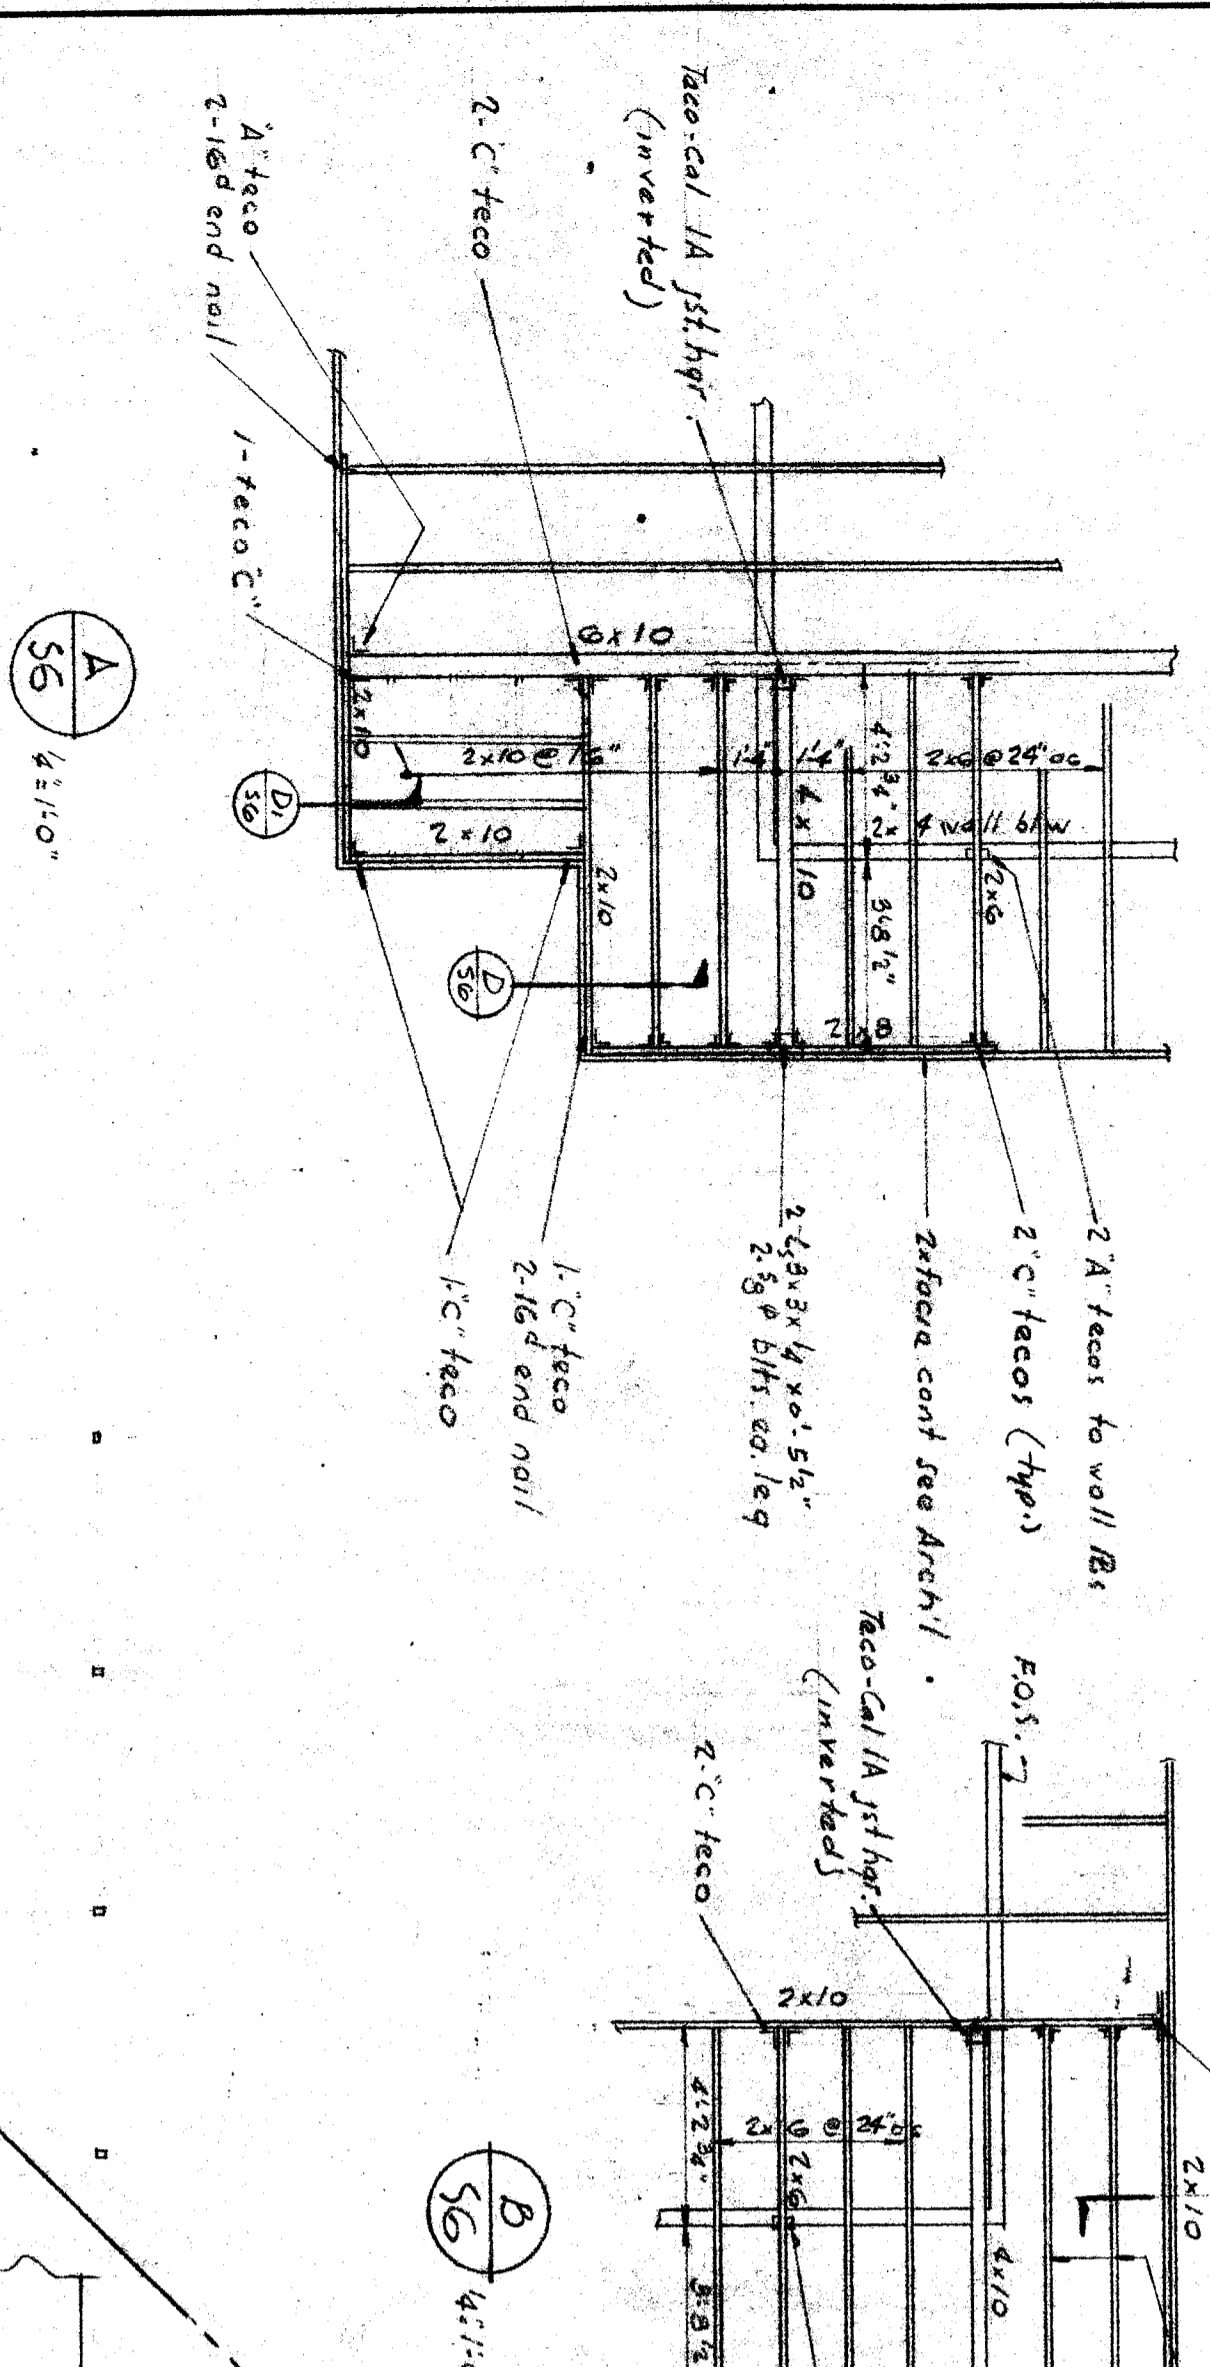 Taco-Cal 1A jst. hgr.
(inverted)
2-"C" teco
"A" teco
2-16d end nail
1-teco "C"
6x10
2x10
2x10 @ 1'-6"
1'-4"
1'-4"
4'-2 3/4"
2x6 @ 24" oc
2x4 wall blw
2x10
4x10
2x10
3'-8 1/2"
2x6
2x8
D1
S6
D
S6
2 "A" tecos to wall
2 "C" tecos (typ.)
2x facia cont see Arch'l.
2-Ls 3x3x1/4 x0'-5 1/2"
2-5/8 φ blts. ea. leg
1-"C" teco
2-16d end nail
1-"C" teco
A
S6
1/4"=1'-0"
F.O.S.
Teco-Cal 1A jst hgr.
(inverted)
2-"C" teco
2x10
4'-2 3/4"
2x6 @ 24" oc
2x6
3'-8 1/2
4x10
2x10
B
S6